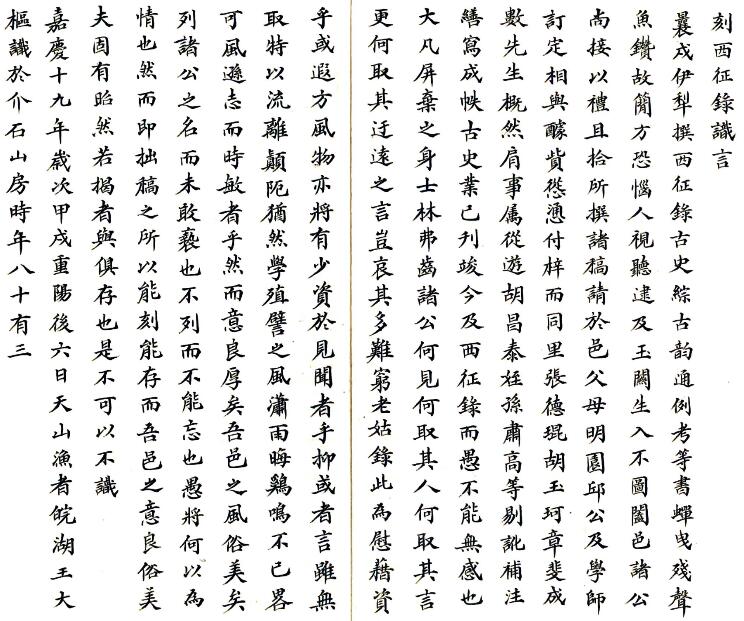 刻西征錄識言
曩戍伊犁撰西征錄古史綜古韵通例考等書蟬曳殘聲
魚鑽故簡方恐惱人視聽逮及玉關生入不圖闔邑諸公
尚接以禮且拾所撰諸稿請於邑父母明園邱公及學師
訂定相與醵貲慫慂付梓而同里張德琨胡玉珂章斐成
數先生概然肩事属從遊胡昌泰姪孫肅高等剔訛補注
繕寫成帙古史業已列竣今及西征錄而愚不能無感也
大凡屏棄之身士林弗齒諸公何見何取其人何取其言
更何取其迂遠之言豈哀其多難窮老姑錄此為慰藉資
乎或遐方風物亦將有少資於見聞者乎抑或者言雖無
取特以流離顛阨猶然學殖譬之風瀟雨晦鷄鳴不已畧
可風遜志而時敏者乎然而意良厚矣吾邑之風俗美矣
列諸公之名而未敢褻也不列而不能忘也愚將何以為
情也然而即拙稿之所以能刻能存而吾邑之意良俗美
夫固有昭然若揭者與俱存也是不可以不識
嘉慶十九年歲次甲戌重陽後六日天山漁者皖湖王大
樞識於介石山房時年八十有三